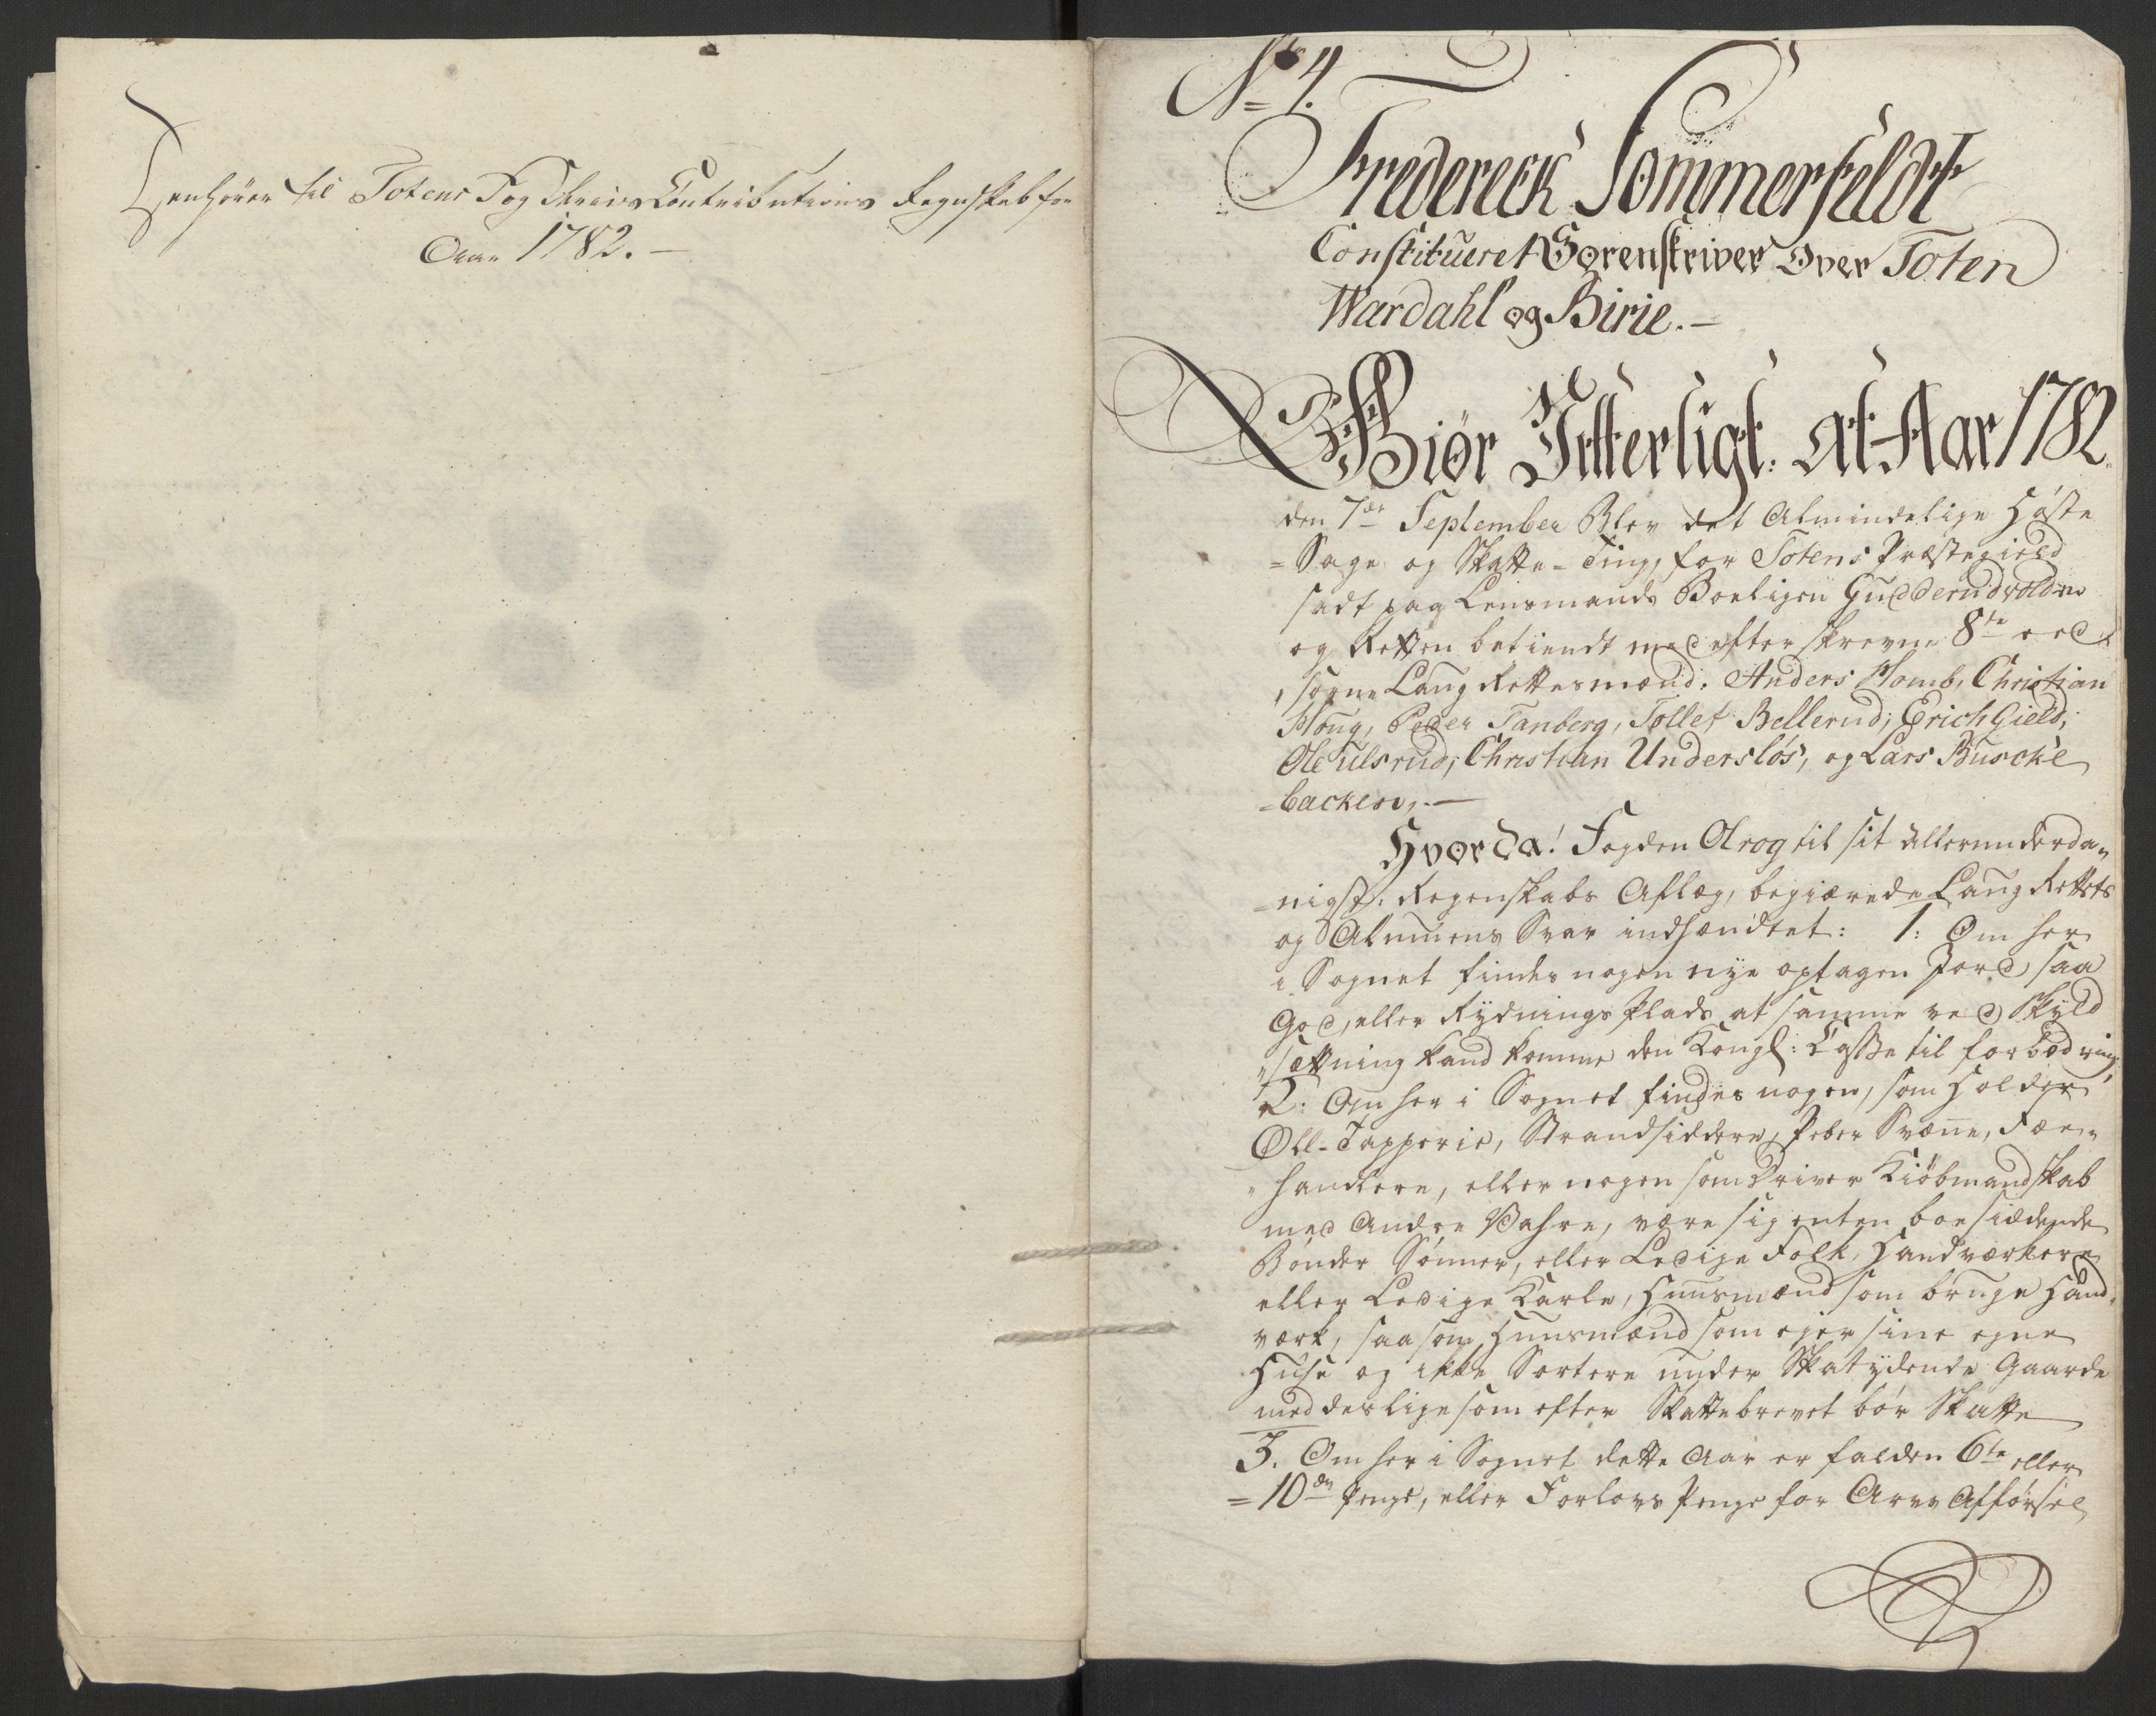 Henhører til Totens Fogderies Contributions Regnskab for
Aar 1782. —
No 4.
Frederech Sommerfeldt
Constitueret Sorenskriver Over Toten
Wardahl og Birie. —
Giør Vitterligt: at Aar 1782
den 7de September Blev det Almindelige Høste
= Sage og Skatte-Ting, for Totens Præstegield
sadt paa Lensmands Boeligen Gudderudvolden
og Retten betiendt med efterskrevne 8te eed
sorne Laug Rettesmænd: Anders Homb, Christian
Houg, Peder Tanberg, Tollef Bellerud, Erich Gield,
Ole Ulsrud, Christian Undersløs, og Lars Buscke
=backen, —
Hvor da! Fogden Arog til sit allerunderda„
=nigst: Regenskabs Aflæg, begiærede Laug Rettets
og Almuens Svar indhændtet: 1: Om her
i Sognet findes nogen nye optagen Jord, saa
God, eller Rydnings Plads at samme ved Skyld
„sættning kand komme den Kongl: Casse til forbedring,
2: Om her i Sognet findes nogen, som Holder
Øll-Tapperie, Strandsiddere, Peber Svænne, Fæe„
„handlere, eller nogen som Driver Kiøbmandskab
med Andre Wahre, være sig enten boesiddende
Bønder Sønner, eller Ledige Folk, Handværkere
eller Ledige Karle, Huusmænd som bruge Hand„
værk, saa som Huusmænd som ejer sine egne
Huse og ikke Sortere under Skatydende Gaarde
med deslige som efter Skattebrevet bør Skatte
3. Om her i Sognet dette Aar er falden 6te eller
=10de Penge, eller Forlovs Penge for Arve Afførsel